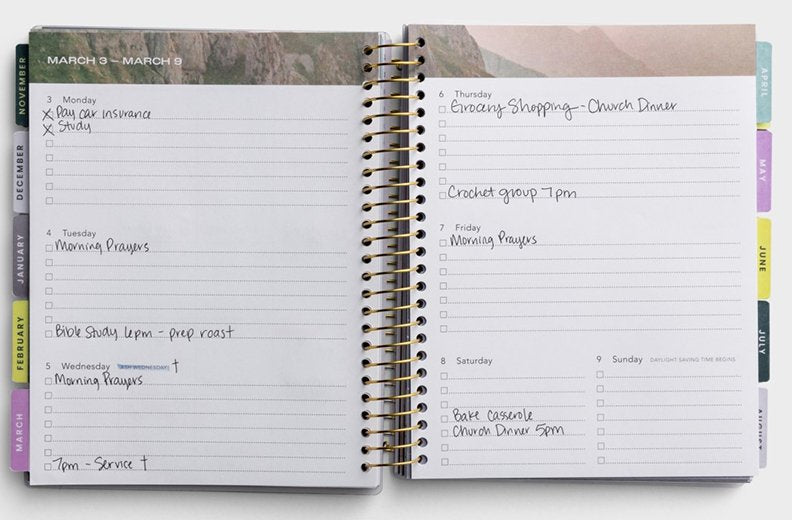 MARCH 3 – MARCH 9
3 Monday
Pay car insurance
Study
4 Tuesday
Morning Prayers
Bible Study 6pm - prep roast
5 Wednesday ASH WEDNESDAY †
Morning Prayers
7pm - Service †
6 Thursday
Grocery Shopping - Church Dinner
Crochet group 7pm
7 Friday
Morning Prayers
8 Saturday
Bake Casserole
Church Dinner 5pm
9 Sunday DAYLIGHT SAVING TIME BEGINS
NOVEMBER
DECEMBER
JANUARY
FEBRUARY
MARCH
APRIL
MAY
JUNE
JULY
AUGUST